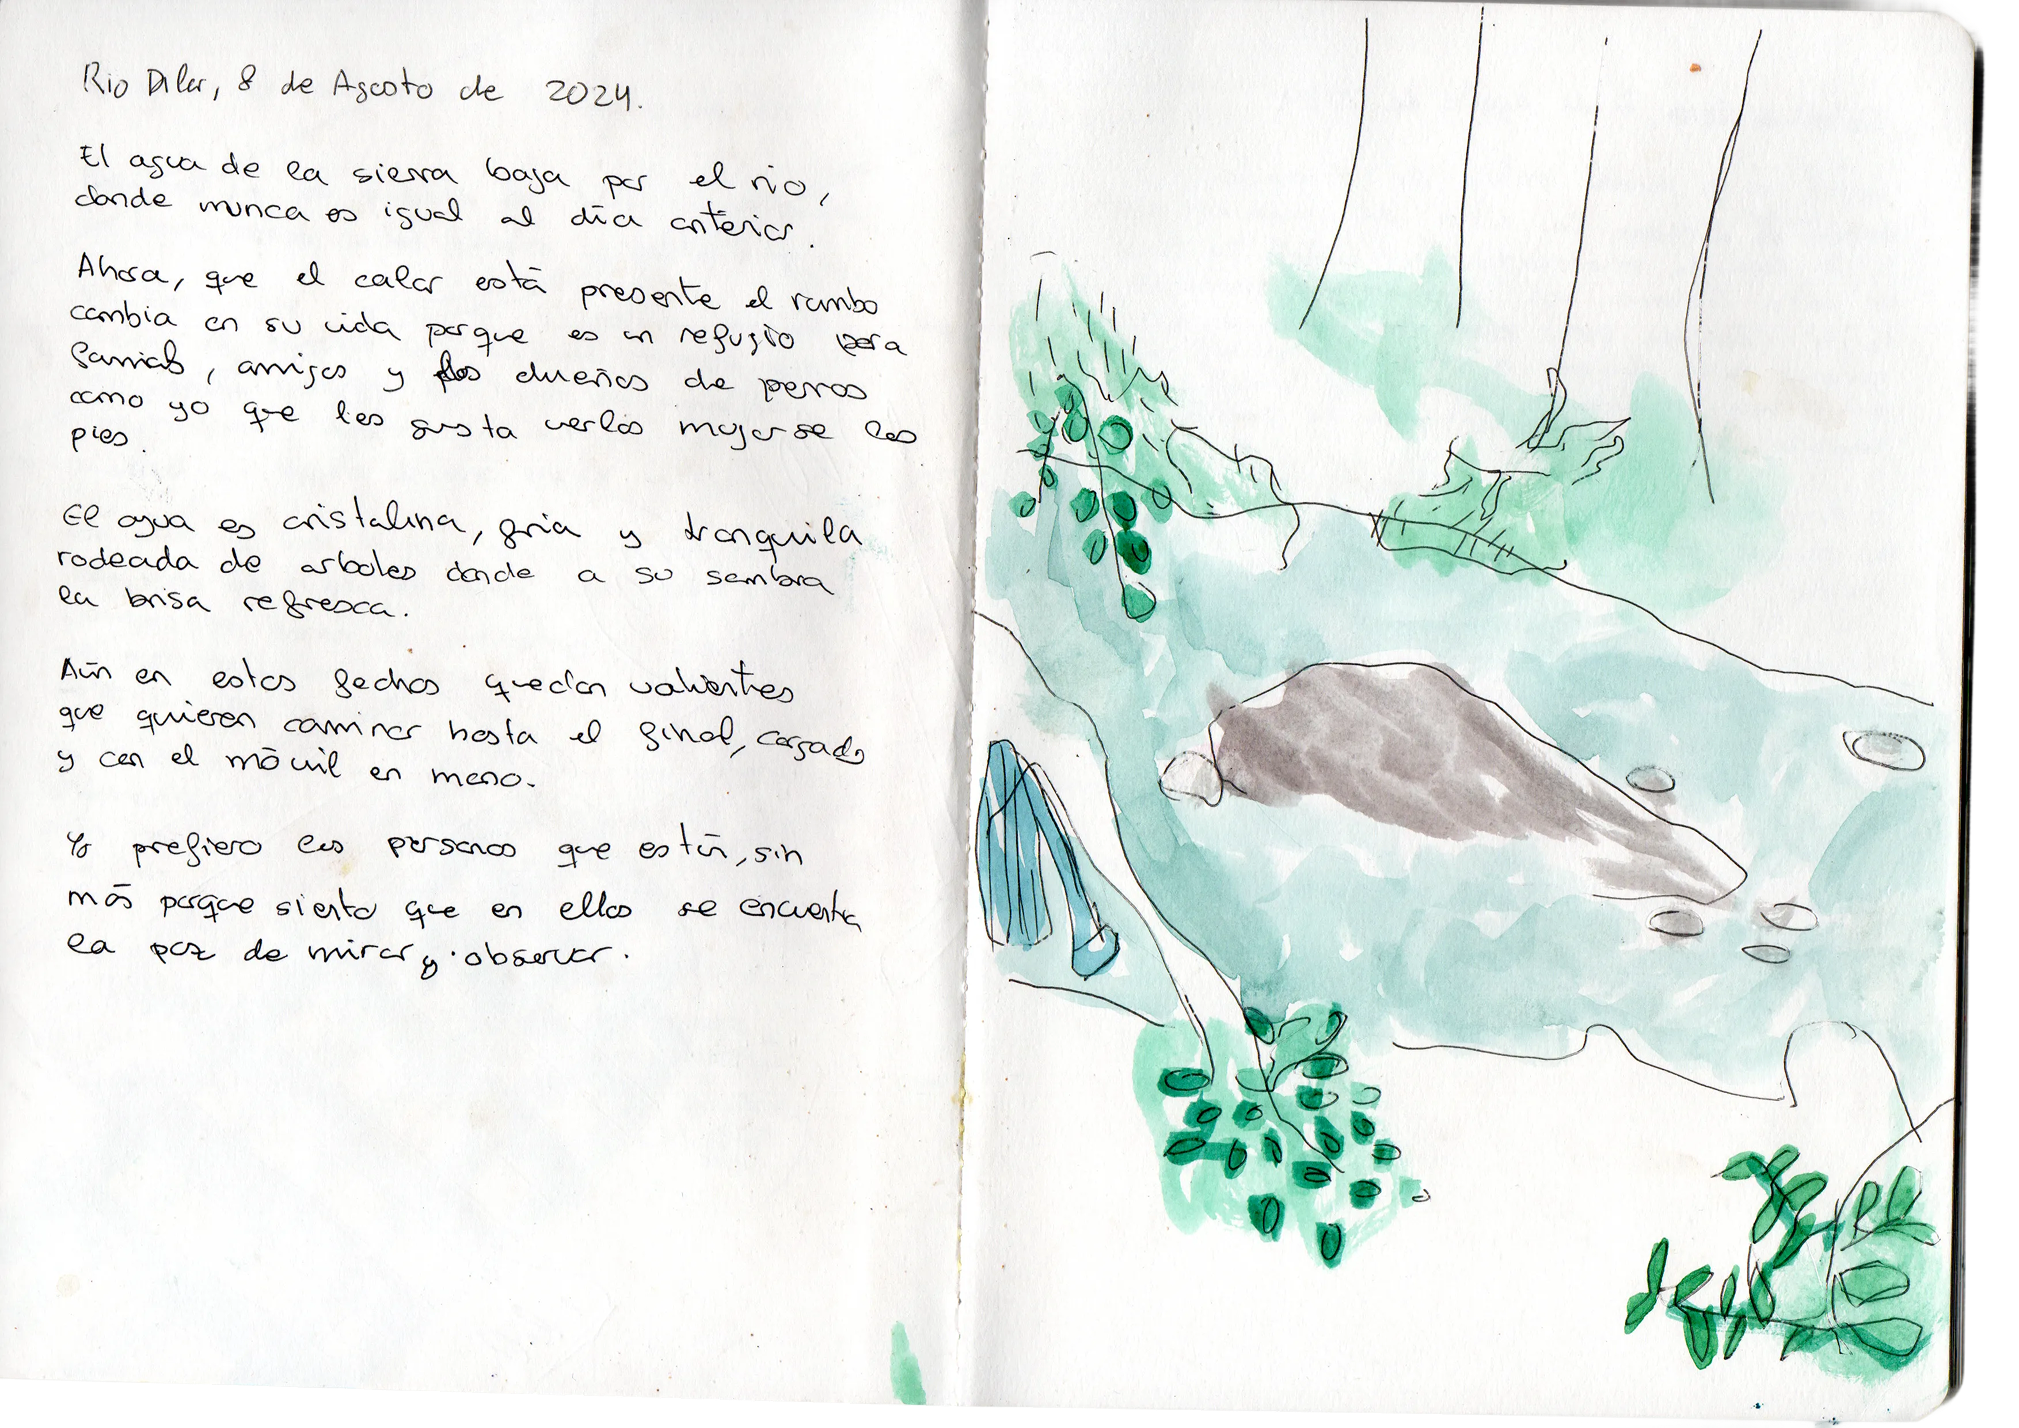 Rio Dilar, 8 de Agosto de 2024.
El agua de la sierra baja por el rio,
donde nunca es igual al día anterior.
Ahora, que el calor está presente el rumbo
cambia en su vida porque es un refugio para
familias, amigos y los dueños de perros
como yo que les gusta verlos mojarse los
pies.
El agua es cristalina, fria y tranquila
rodeada de arboles donde a su sombra
la brisa refresca.
Aún en estas fechas quedan valientes
que quieren caminar hasta el final, cargados
y con el móvil en mano.
Yo prefiero las personas que están, sin
más porque siento que en ellas se encuentra
la paz de mirar y observar.